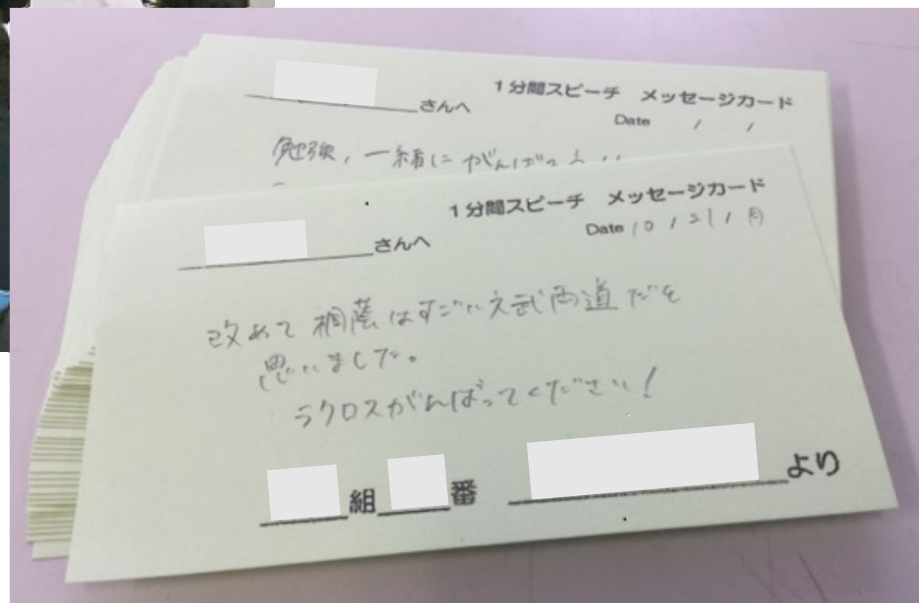 さんへ
1分間スピーチ メッセージカード
Date / /
勉強,一緒にがんばろう!!
さんへ
1分間スピーチ メッセージカード
Date 10 / 21 / 月
改めて桐蔭はすごい文武両道だと
思いました。
ラクロスがんばってください!
組 番 より